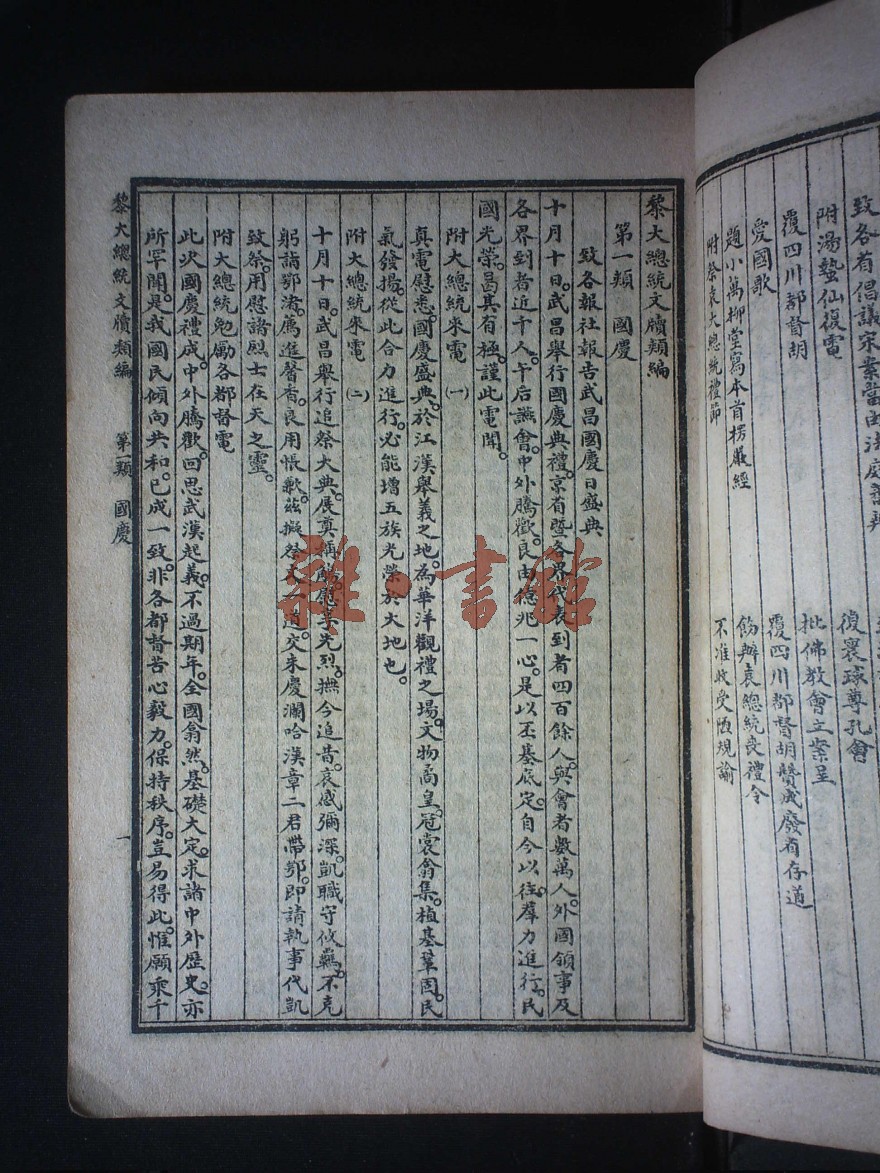 致各省倡議宋案當由法庭
附湯蟄仙復電
覆四川都督胡
愛國歌
題小萬柳堂寫本首楞嚴經
附祭袁大總統禮節
復襄球尊孔會
批佛教會立案呈
覆四川都督胡贊成廢省存道
飭辦袁總統喪禮令
不准收受陋規諭
黎大總統文牘類編
第一類 國慶
致各報社報告武昌國慶日盛典
十月十日。武昌舉行國慶典禮。京省暨各界代表到者四百餘人。與會者數萬人。外國領事及
各界到者近千人。午后讌會。中外騰歡。良由億兆一心。是以丕基底定。自今以往。羣力進行。民
國光榮。曷其有極。謹此電聞。
附大總統來電 (一)
真電慰悉。國慶盛典。於江漢舉義之地。為華洋觀禮之場。文物矞皇。冠裳翕集。植基鞏固。民
氣發揚。從此合力進行。必能增五族光榮於大地也。
附大總統來電 (二)
十月十日。武昌舉行追祭大典。展奠稱觴。慰享先烈。撫今追昔。哀感彌深。凱職守攸羈。不克
躬詣鄂渚。薦進馨香。良用悵歉。茲擬祭文一道。交朱慶瀾哈漢章二君帶鄂。即請執事代凱
致祭。用慰諸烈士在天之靈。
附大總統勉勵各都督電
此次國慶禮成。中外騰歡。回思武漢起義。不過期年。全國翕然。基礎大定。求諸中外歷史。亦
所罕聞。是我國民傾向共和。已成一致。非各都督苦心毅力。保持秩序。豈易得此。惟願乘千
黎大總統文牘類編 第一類 國慶 一
雜·書館